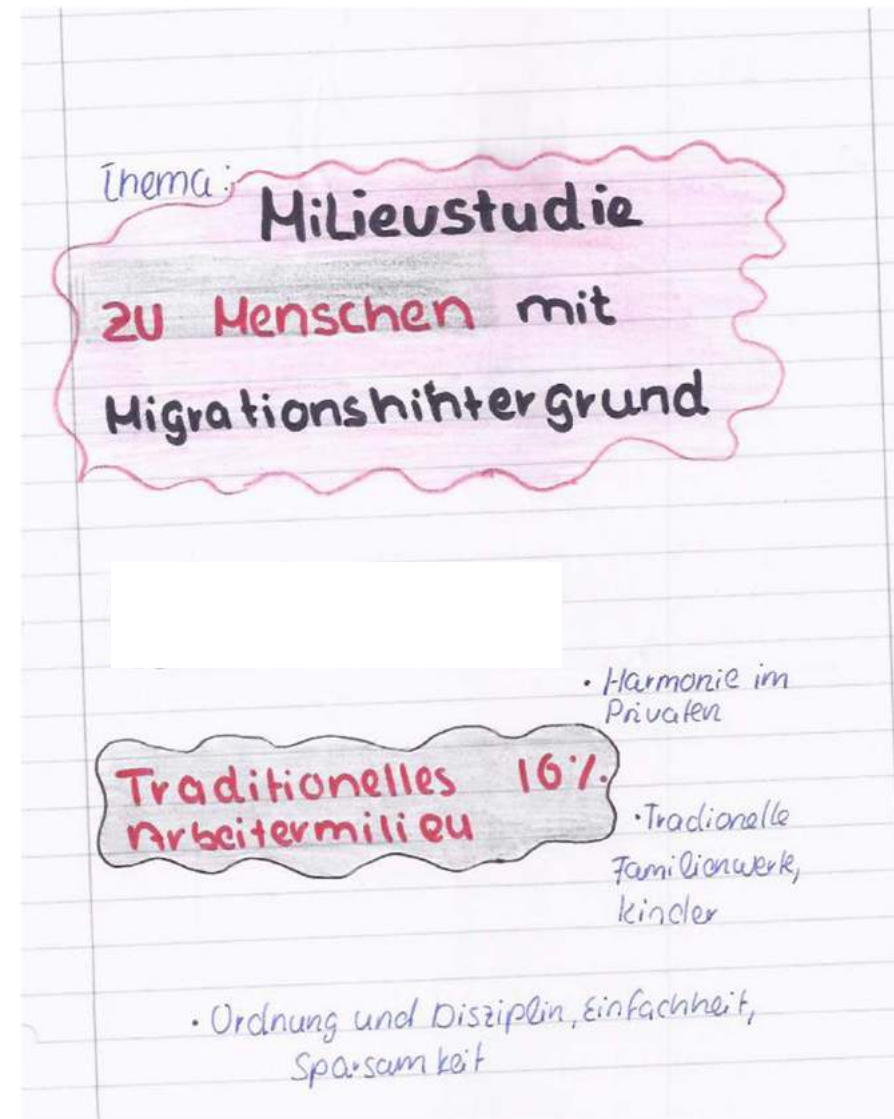 Thema:
Milieustudie
zu Menschen mit
Migrationshintergrund
• Harmonie im
Privaten
Traditionelles 16%
Arbeitermilieu
• Tradionelle
Familienwerte,
kinder
• Ordnung und Disziplin, Einfachheit,
Sparsamkeit